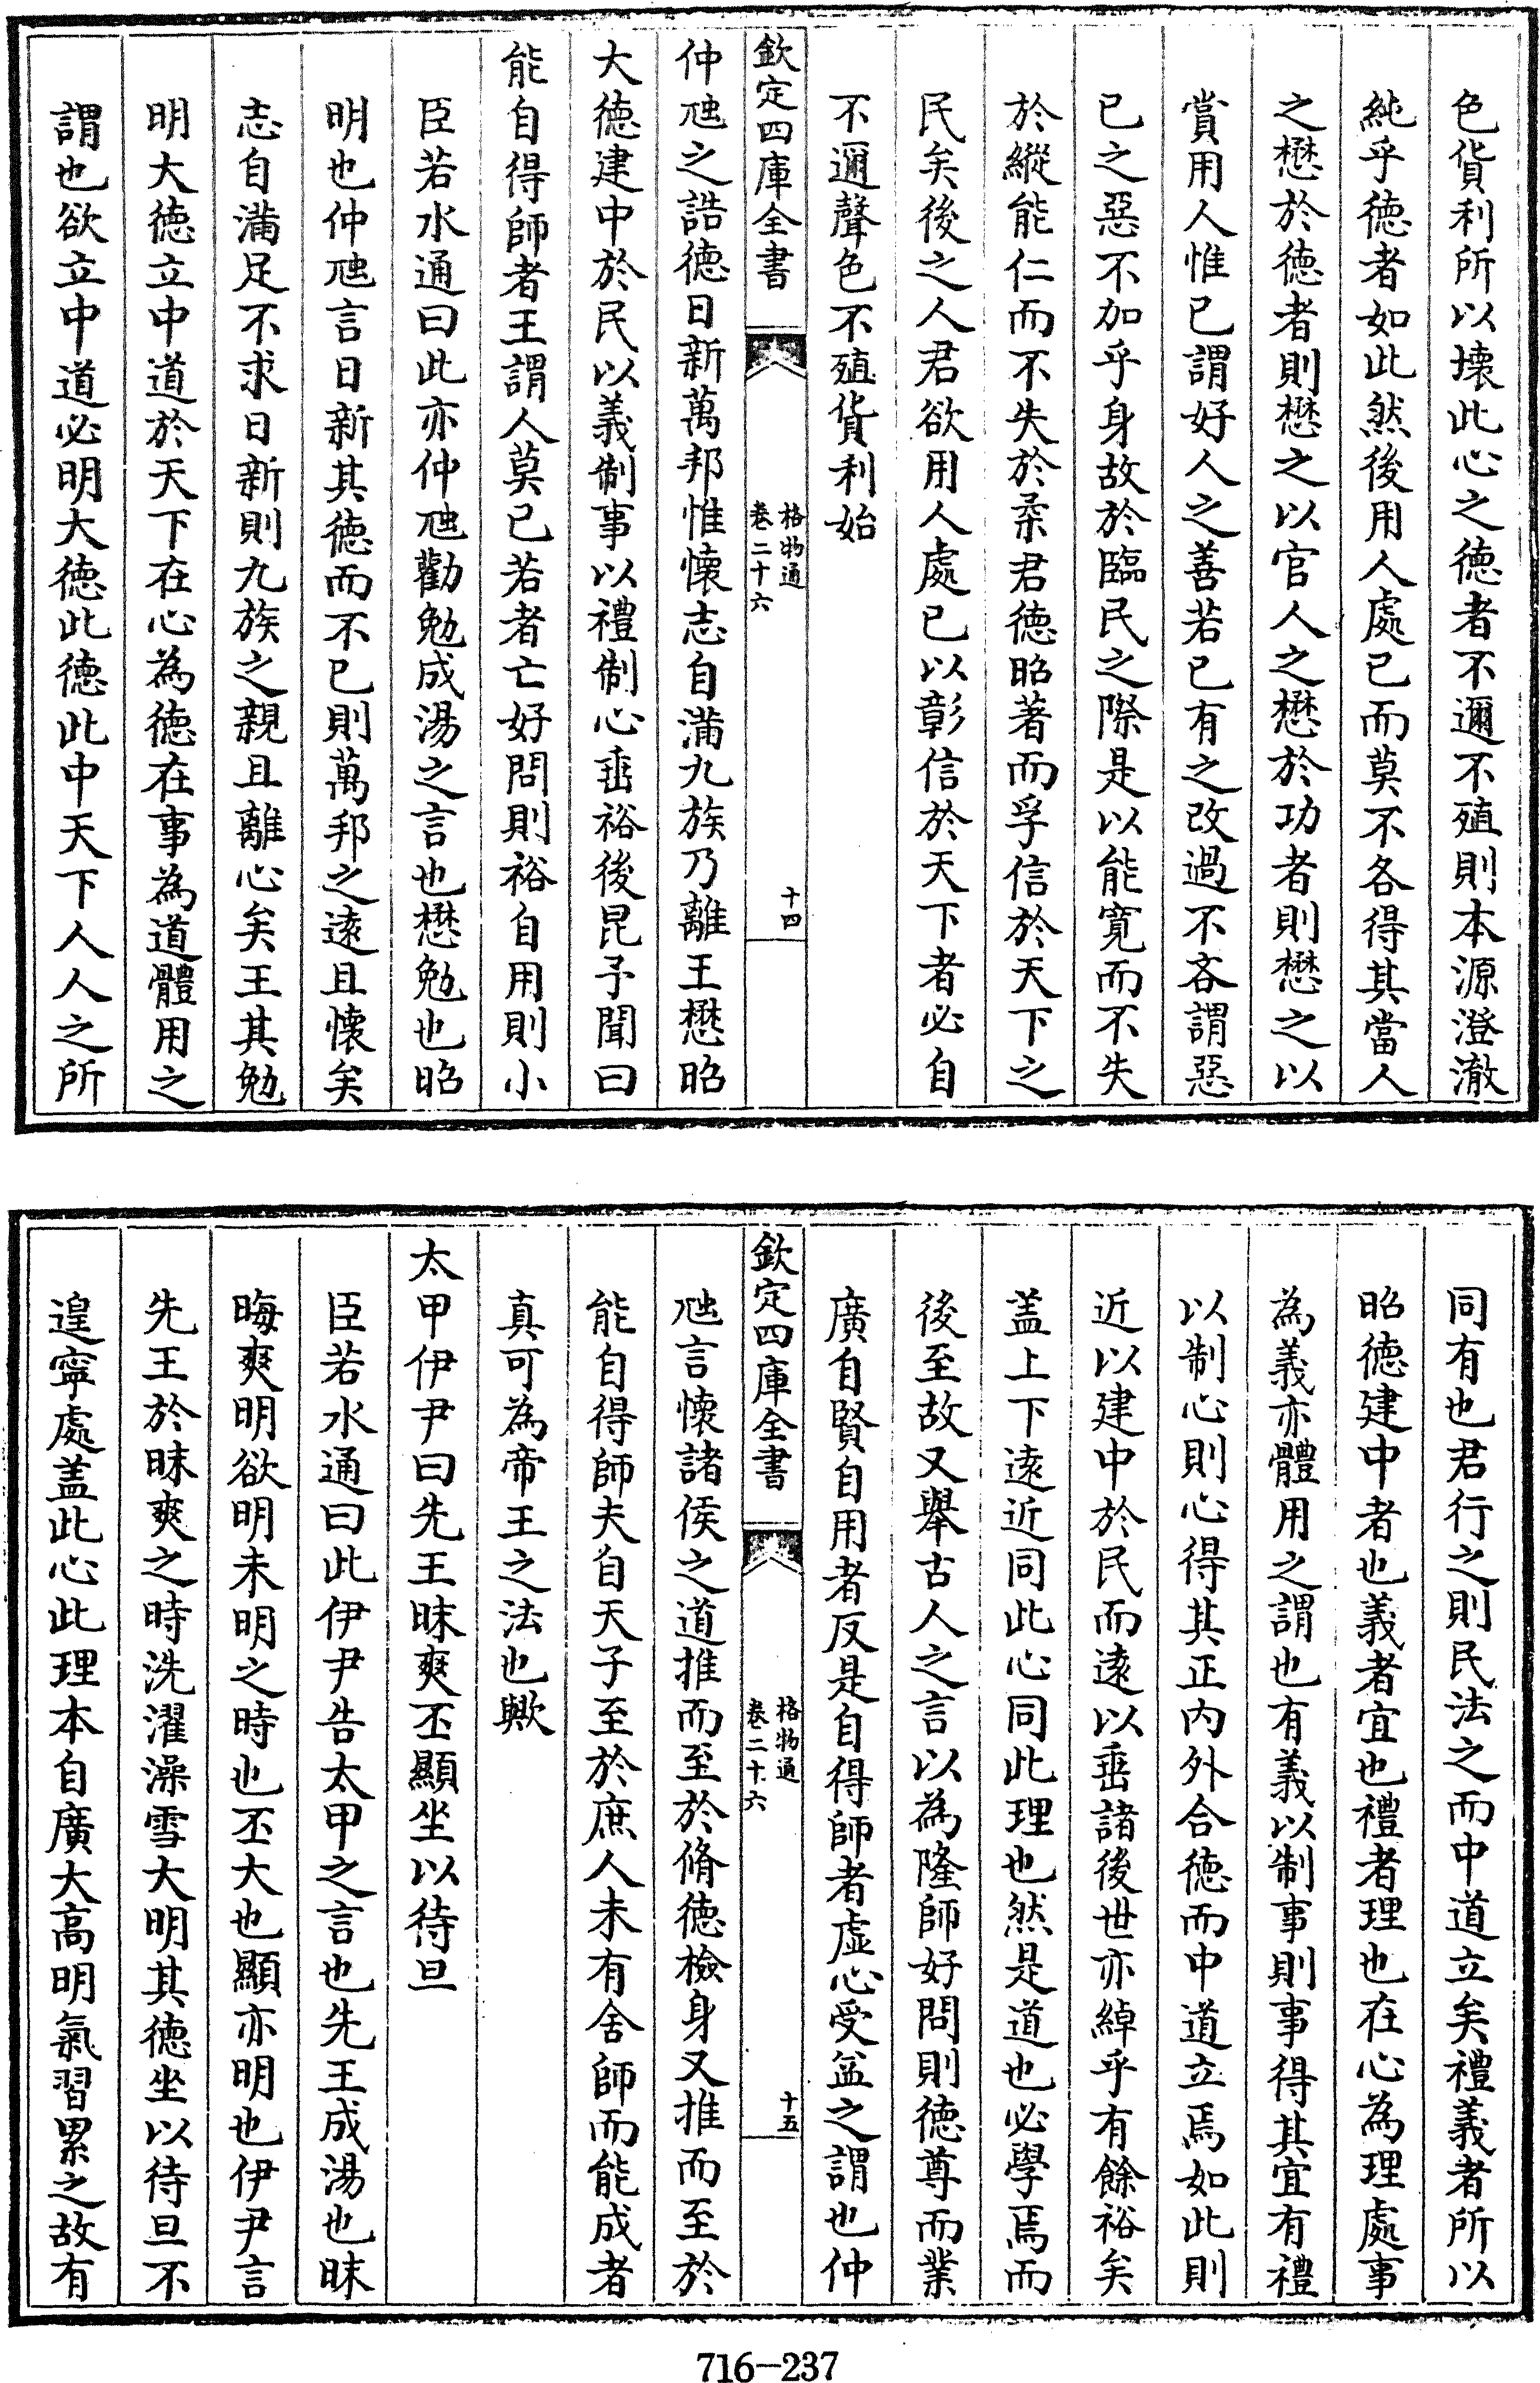 色貨利所以壊此心之徳者不邇不殖則本源澄澈
純乎徳者如此然後用人處已而莫不各得其當人
之懋於徳者則懋之以官人之懋於功者則懋之以
賞用人惟已謂好人之善若已有之改過不吝謂惡
已之惡不加乎身故於臨民之際是以能寛而不失
於縱能仁而不失於柔君徳昭著而孚信於天下之
民矣後之人君欲用人處已以彰信於天下者必自
不邇聲色不殖貨利始
欽定四庫全書
格物通
卷二十六
十四
仲虺之誥徳日新萬邦惟懐志自滿九族乃離王懋昭
大徳建中於民以義制事以禮制心垂裕後昆予聞曰
能自得師者王謂人莫已若者亡好問則裕自用則小
臣若水通曰此亦仲虺勸勉成湯之言也懋勉也昭
明也仲虺言日新其徳而不已則萬邦之逺且懐矣
志自滿足不求日新則九族之親且離心矣王其勉
明大徳立中道於天下在心為徳在事為道體用之
謂也欲立中道必明大徳此徳此中天下人人之所
同有也君行之則民法之而中道立矣禮義者所以
昭徳建中者也義者宜也禮者理也在心為理處事
為義亦體用之謂也有義以制事則事得其宜有禮
以制心則心得其正内外合徳而中道立焉如此則
近以建中於民而逺以垂諸後世亦綽乎有餘裕矣
盖上下逺近同此心同此理也然是道也必學焉而
後至故又舉古人之言以為隆師好問則徳尊而業
廣自賢自用者反是自得師者虚心受益之謂也仲
欽定四庫全書
格物通
卷二十六
十五
虺言懐諸侯之道推而至於脩徳檢身又推而至於
能自得師夫自天子至於庶人未有舍師而能成者
真可為帝王之法也歟
太甲伊尹曰先王昧爽丕顯坐以待旦
臣若水通曰此伊尹告太甲之言也先王成湯也昧
晦爽明欲明未明之時也丕大也顯亦明也伊尹言
先王於昧爽之時洗濯澡雪大明其徳坐以待旦不
遑寧處盖此心此理本自廣大高明氣習累之故有
716-237